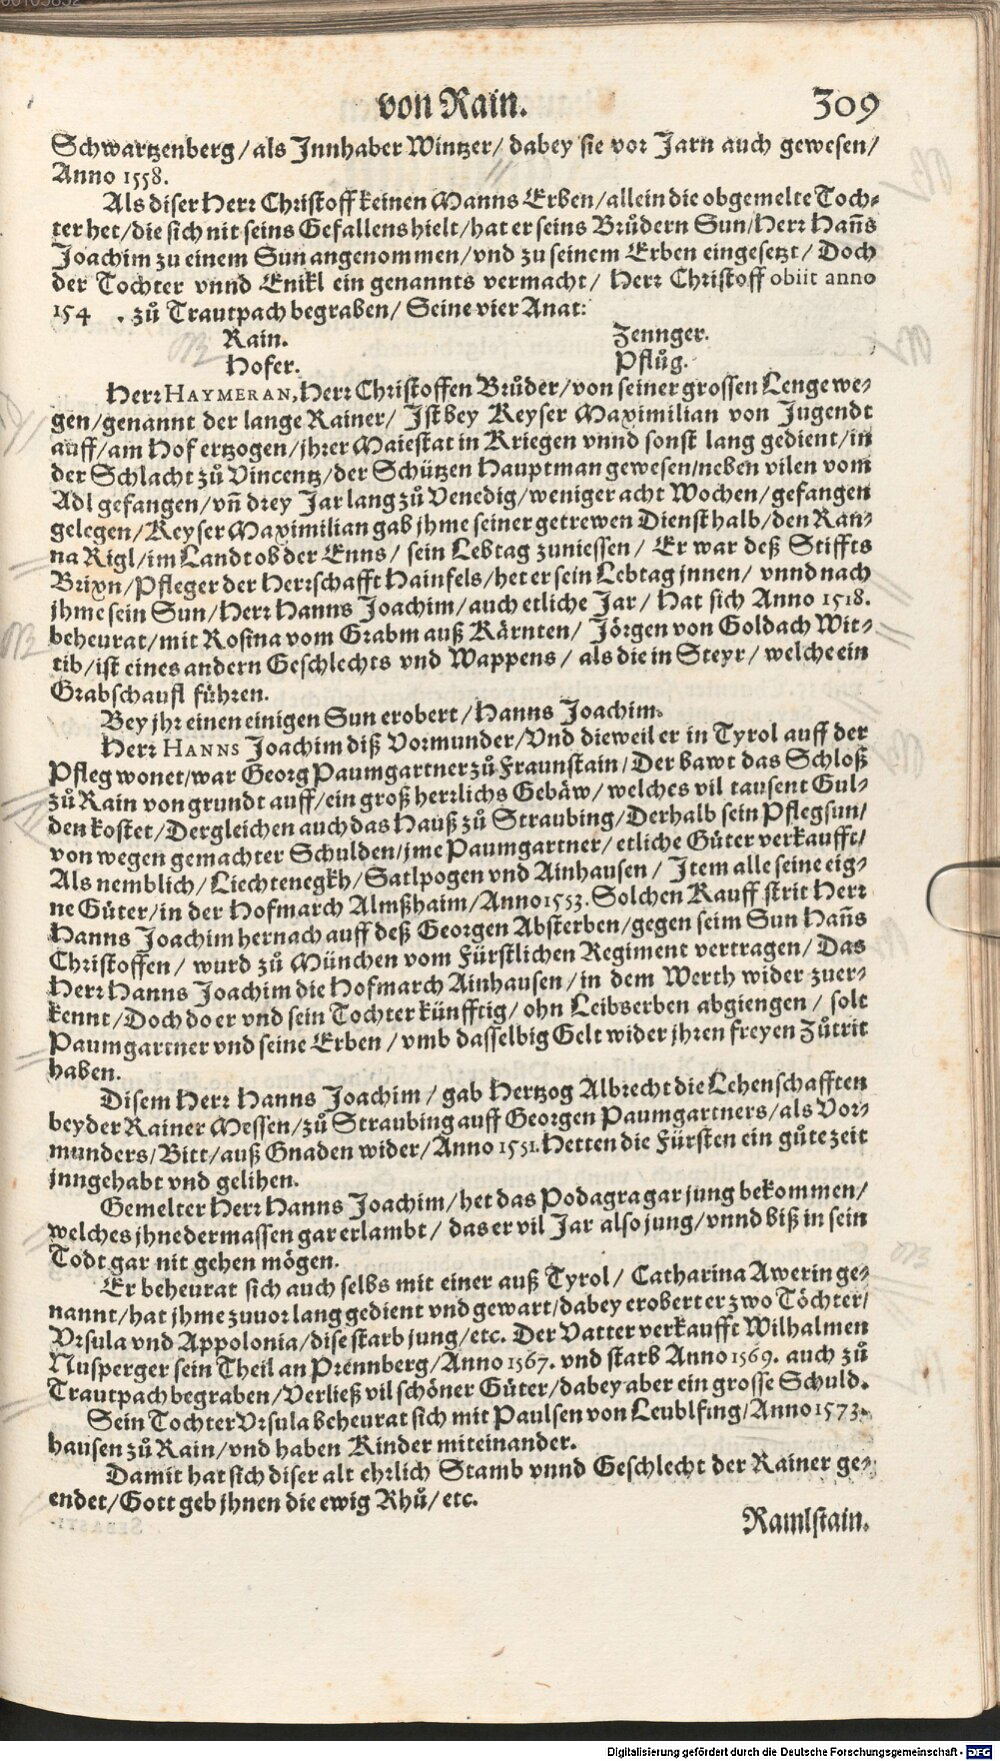 von Rain. 309
Schwartzenberg / als Innhaber Wintzer / dabey sie vor Jarn auch gewesen /
Anno 1558.
Als diser Herr Christoff keinen Manns Erben / allein die obgemelte Toch-
ter het / die sich nit seins Gefallens hielt / hat er seins Brůdern Sun / Herr Hañs
Joachim zu einem Sun angenommen / vnd zu seinem Erben eingesetzt / Doch
der Tochter vnnd Enikl ein genannts vermacht / Herr Christoff obiit anno
154 . zů Trautpach begraben / Seine vier Anat:
Rain. Zennger.
Hofer. Pflůg.
Herr HAYMERAN, Herr Christoffen Brůder / von seiner grossen Lenge we-
gen / genannt der lange Rainer / Ist bey Keyser Maximilian von Jugendt
auff / am Hof ertzogen / jhrer Maiestat in Kriegen vnnd sonst lang gedient / in
der Schlacht zů Vincentz / der Schützen Hauptman gewesen / neben vilen vom
Adl gefangen / vñ drey Jar lang zů Venedig / weniger acht Wochen / gefangen
gelegen / Keyser Maximilian gab jhme seiner getrewen Dienst halb / den Ran-
na Rigl / im Landt ob der Enns / sein Lebtag zuniessen / Er war deß Stiffts
Brixn / Pfleger der Herrschafft Hainfels / het er sein Lebtag jnnen / vnnd nach
jhme sein Sun / Herr Hanns Joachim / auch etliche Jar / Hat sich Anno 1518.
beheurat / mit Rosina vom Grabm auß Kärnten / Jörgen von Goldach Wit-
tib / ist eines andern Geschlechts vnd Wappens / als die in Steyr / welche ein
Grabschaufl führen.
Bey jhr einen einigen Sun erobert / Hanns Joachim.
Herr HANNS Joachim diß Vormunder / Vnd dieweil er in Tyrol auff der
Pfleg wonet / war Georg Paumgartner zů Fraunstain / Der bawt das Schloß
zů Rain von grundt auff / ein groß herrlichs Gebäw / welches vil tausent Gul-
den kostet / Dergleichen auch das Hauß zů Straubing / Derhalb sein Pflegsun /
von wegen gemachter Schulden / jme Paumgartner / etliche Güter verkaufft /
Als nemblich / Liechtenegkh / Satlpogen vnd Ainhausen / Item alle seine eig-
ne Güter / in der Hofmarch Almßhaim / Anno 1553. Solchen Kauff strit Herr
Hanns Joachim hernach auff deß Georgen Absterben / gegen seim Sun Hañs
Christoffen / wurd zů München vom Fürstlichen Regiment vertragen / Das
Herr Hanns Joachim die Hofmarch Ainhausen / in dem Werth wider zuer-
kennt / Doch do er vnd sein Tochter künfftig / ohn Leibserben abgiengen / solt
Paumgartner vnd seine Erben / vmb dasselbig Gelt wider jhren freyen Zůtrit
haben.
Disem Herr Hanns Joachim / gab Hertzog Albrecht die Lehenschafften
beyder Rainer Messen / zů Straubing auff Georgen Paumgartners / als Vor-
munders / Bitt / auß Gnaden wider / Anno 1551. Hetten die Fürsten ein gůte zeit
jnngehabt vnd gelihen.
Gemelter Herr Hanns Joachim / het das Podagra gar jung bekommen /
welches jhne dermassen gar erlambt / das er vil Jar also jung / vnnd biß in sein
Todt gar nit gehen mögen.
Er beheurat sich auch selbs mit einer auß Tyrol / Catharina Awerin ge-
nannt / hat jhme zuuor lang gedient vnd gewart / dabey erobert er zwo Töchter /
Vrsula vnd Appolonia / dise starb jung / etc. Der Vatter verkaufft Wilhalmen
Nusperger sein Theil an Prennberg / Anno 1567. vnd starb Anno 1569. auch zů
Trautpach begraben / Verließ vil schöner Güter / dabey aber ein grosse Schuld.
Sein Tochter Vrsula beheurat sich mit Paulsen von Leublfing / Anno 1573.
hausen zů Rain / vnd haben Kinder miteinander.
Damit hat sich diser alt ehrlich Stamb vnnd Geschlecht der Rainer ge-
endet / Gott geb jhnen die ewig Rhů / etc.
Ramlstain.
Digitalisierung gefördert durch die Deutsche Forschungsgemeinschaft - DFG